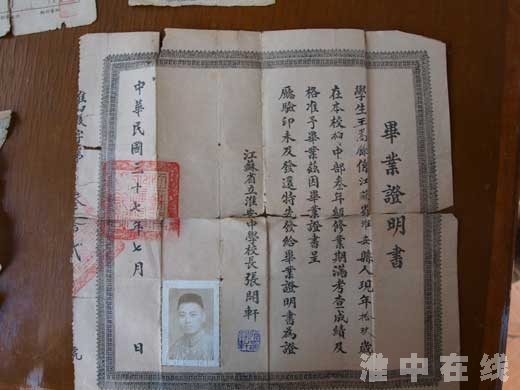 畢業證明書
學生王嵩齡係江蘇省淮安縣人現年拾玖歲
在本校初中部叁年級修業期滿考查成績及
格准予畢業茲因畢業證書呈
廳驗印未及發還特先發給畢業證明書為證
江蘇省立淮安中學校長張聞軒
中華民國三十七年七月 日
號
淮中在线